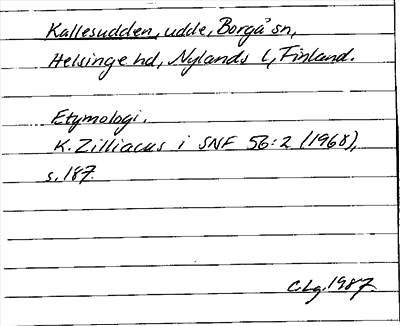 Kallesudden, udde, Borgå sn,
Helsinge hd, Nylands l, Finland.
Etymologi.
K. Zilliacus i SNF 56:2 (1968),
s. 187.
C.Lg. 1987.